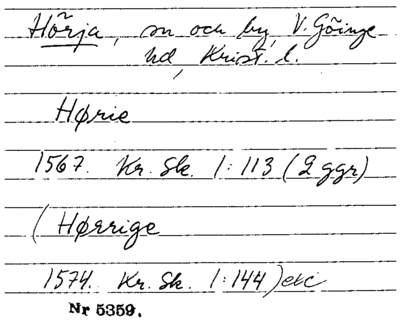 Hörja, sn och by, V. Göinge
hd, Krist. l.
Hørie
1567. Kr. Sk. 1:113 (2 ggr)
(Hørrige
1574. Kr. Sk. 1:144) etc
Nr 5359.